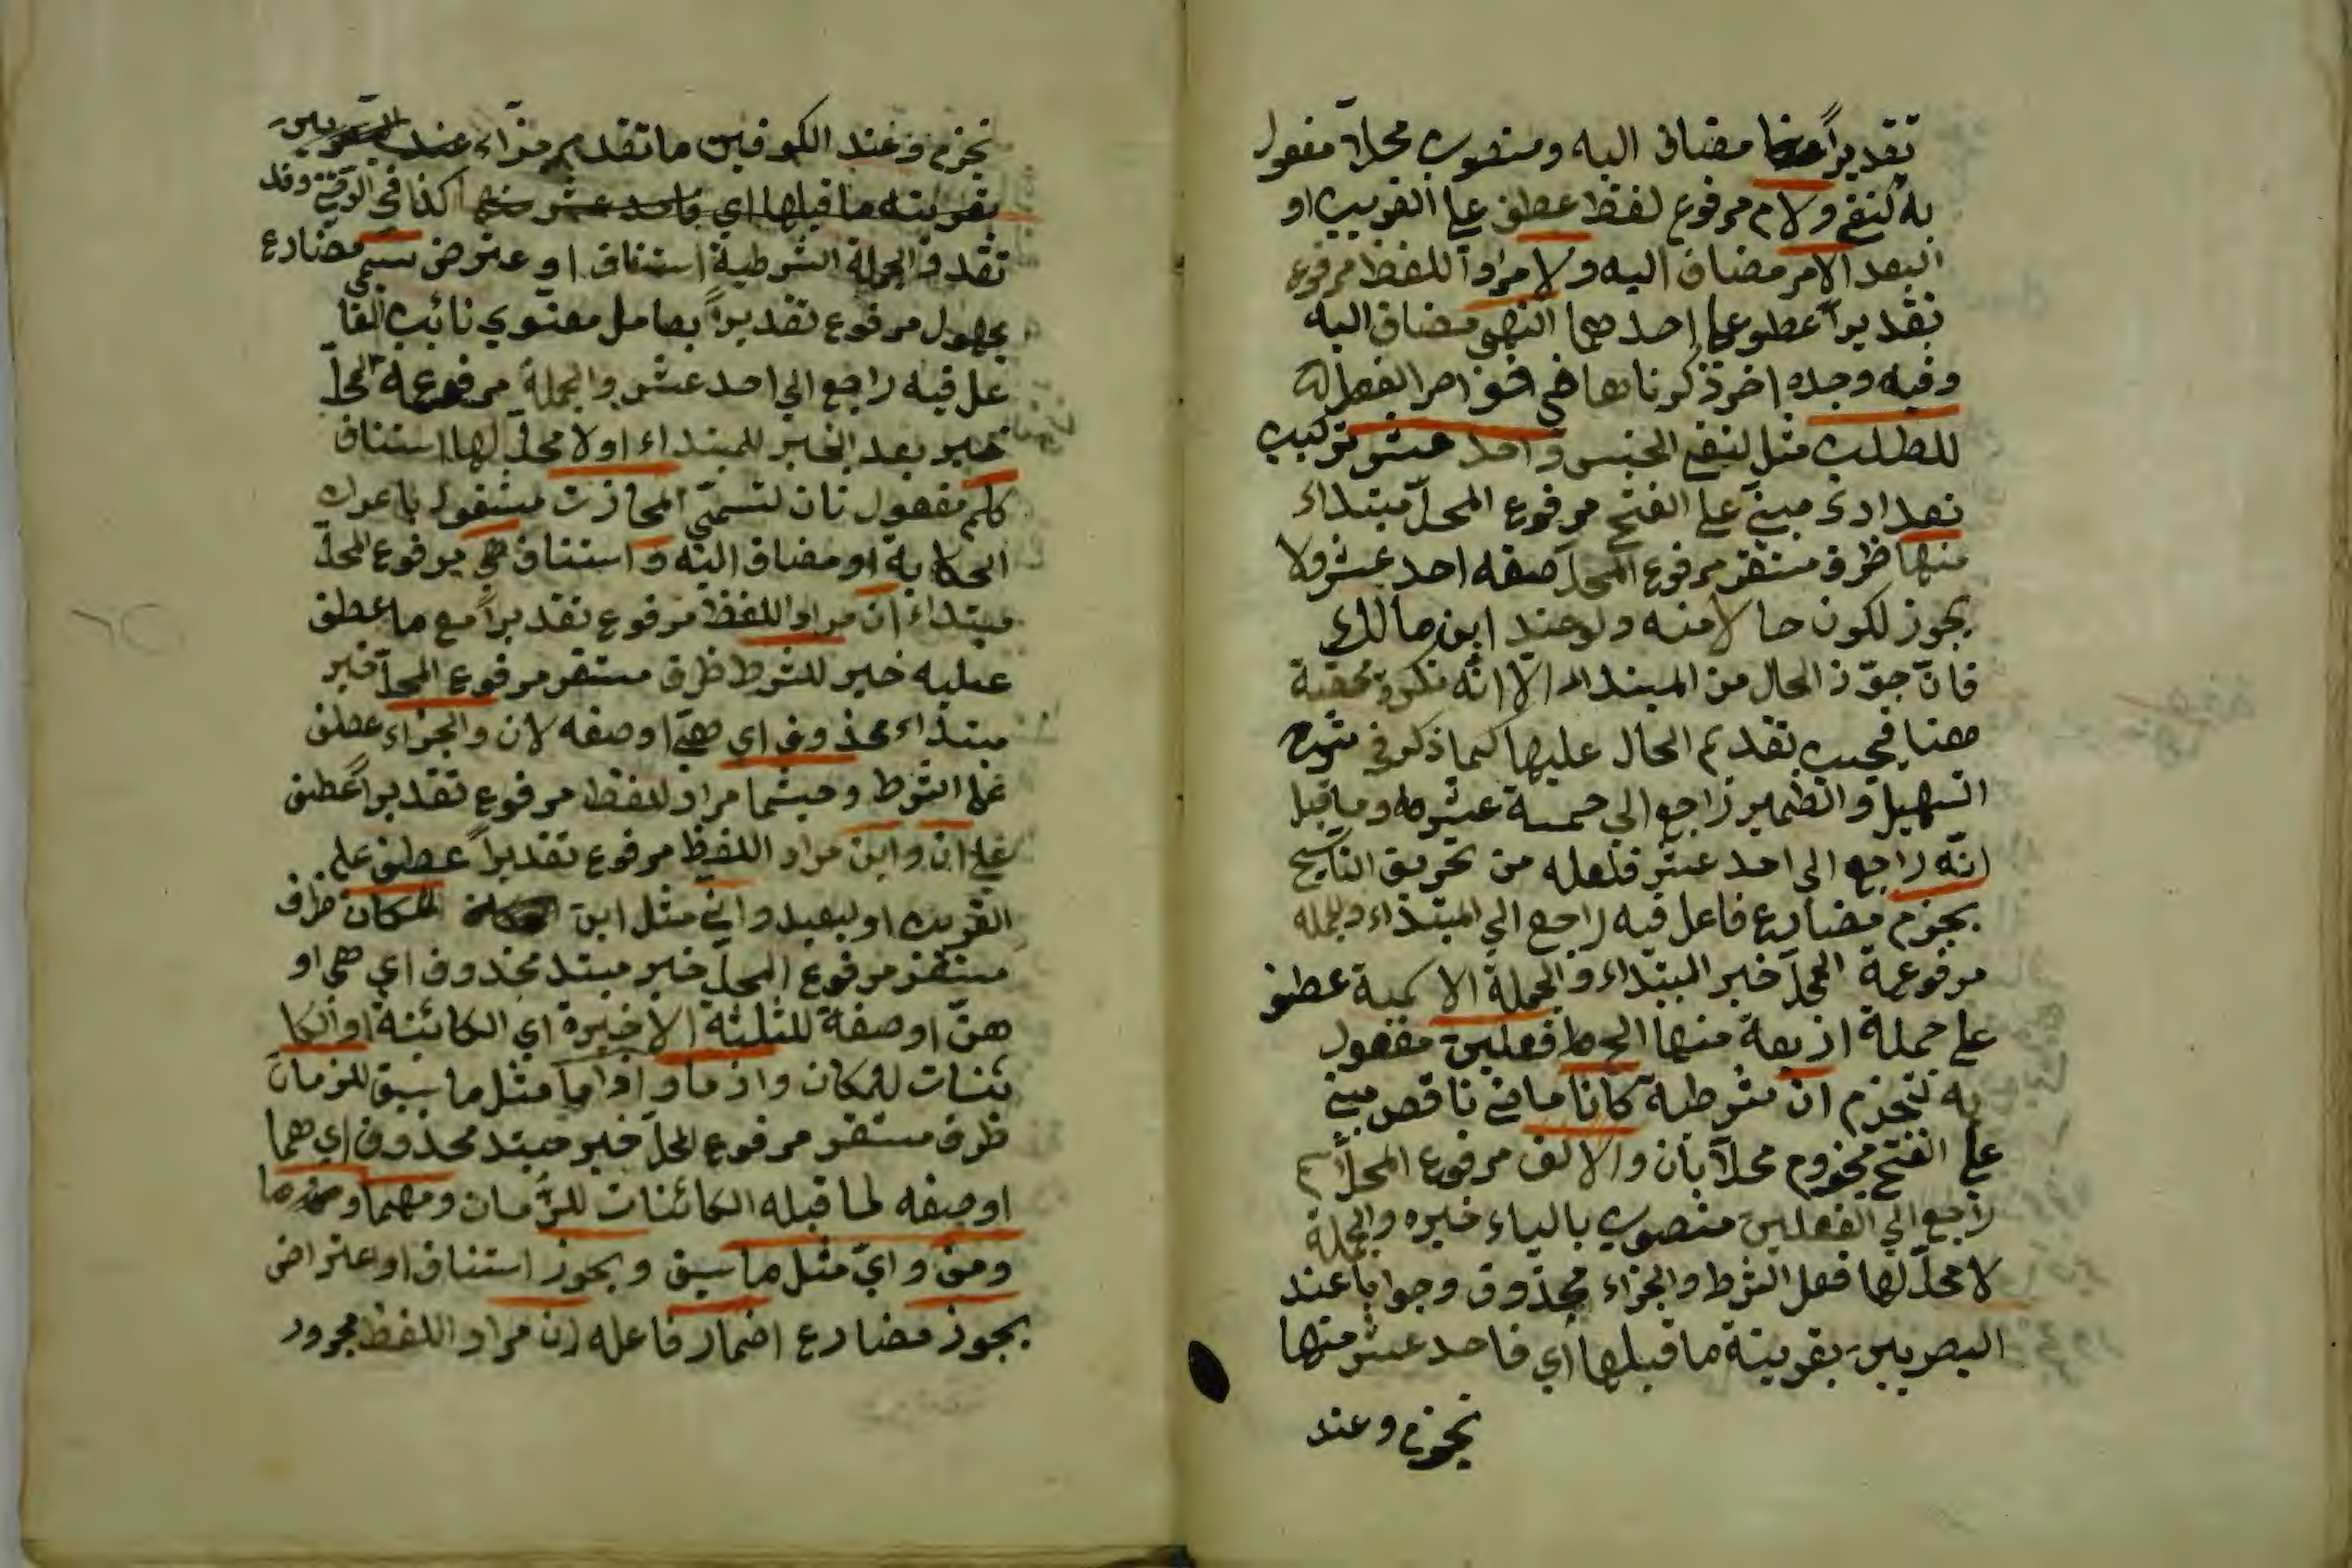 تقديراً مضاف اليه ومنصوب محلاّ مفعول
به لنفع ولام مرفوع لفظ عطف على القريب او
البعد الامر مضاف اليه ولا مراد اللفظ مرفوع
تقديراً عطوع على احدهما النهى مضاف اليه
وفيه وجده اخر ذكرناها في
للطلب مثل لنفى الجنس واحد عشر تركيب
تعدادى مبنىّ على الفتح مرفوع المحلّ مبتداء
منها ظرف مستقر مرفوع المحلّ صفه احد عشر ولا
يجوز لكون حالا منه ولو عند ابن مالك
فانّ جوّز الحال من المبتداء الا انّه نكرة محقبة
مضا فيجب تقديم الحال عليها كما ذكر في شرح
التسهيل والضمير راجع الى خمسة عشر وما قبل
انّه راجع الى احد عشر فلعله من تحريف الناسخ
يجزم مضارع فاعل فيه راجع الى المبتداء والجمله
مرفوعة المحلّ خبر المبتداء والجملة الاسمية عطف
على جملة اربعة منها الخ فعلين مفعول
به لتجزم ان شرطية كانا ماضى ناقص مبنى
على الفتح مجزوم محلاّ بان والالف مرفوع المحلّ اسم
راجع الى الفعلين منصوب بالياء خبره والجملة
لا محلّ لها فعل الشرط والجزاء محذوف وجوبا عند
البصريين بقرينة ما قبلها اي فاحد عشر منها
تجزم وعند
تجزم وعند الكوفين ما تقدم جزاء عند البصريين
بقرينته ما قبلها اي فاحد عشر منها كذا في وقد
تقدم في الجملة الشرطية استناف او عترض تسمى مضارع
مجهول مرفوع تقديراً بعامل معنوي نائب الفا
عل فيه راجع الى احد عشر والجملة مرفوعة المحلّ
خبر بعد الخبر للمبتداء او لا محلّ لها استناف
كلم مفعول ثان لتسمّى المجازات مشغول باعراب
الحكاية او مضاف اليه واستناف هي مرفوع المحلّ
مبتداء ان مراد اللفظ مرفوع تقديراً مع ما عطف
عليه خبر للشرط ظرف مستقر مرفوع المحلّ خبر
مبتداء محذوف اي هى او صفه لان والجزاء عطف
على الشرط وحيثما مراد لفظ مرفوع تقديراً عطف
على ان واين مراد اللفظ مرفوع تقديراً عطف على
القريب او لبعيد وانّى مثل اين للمكان ظرف
مستقر مرفوع المحلّ خبر مبتد محذوف اي هى او
هنّ او صفة للثلثة الاخيرة اي الكائنة او الكا
ئنات للمكان واذ ما واذا ما مثل ما سبق للزمان
ظرف مستقر مرفوع المحلّ خبر مبتد محذوف اي هما
او صفه لما قبله الكائنات للزّمان ومهما وما
ومن وايّ مثل ما سبق ويجوز استناف او عتراض
يجوز مضارع اضمار فاعله ان مراد اللفظ مجرور